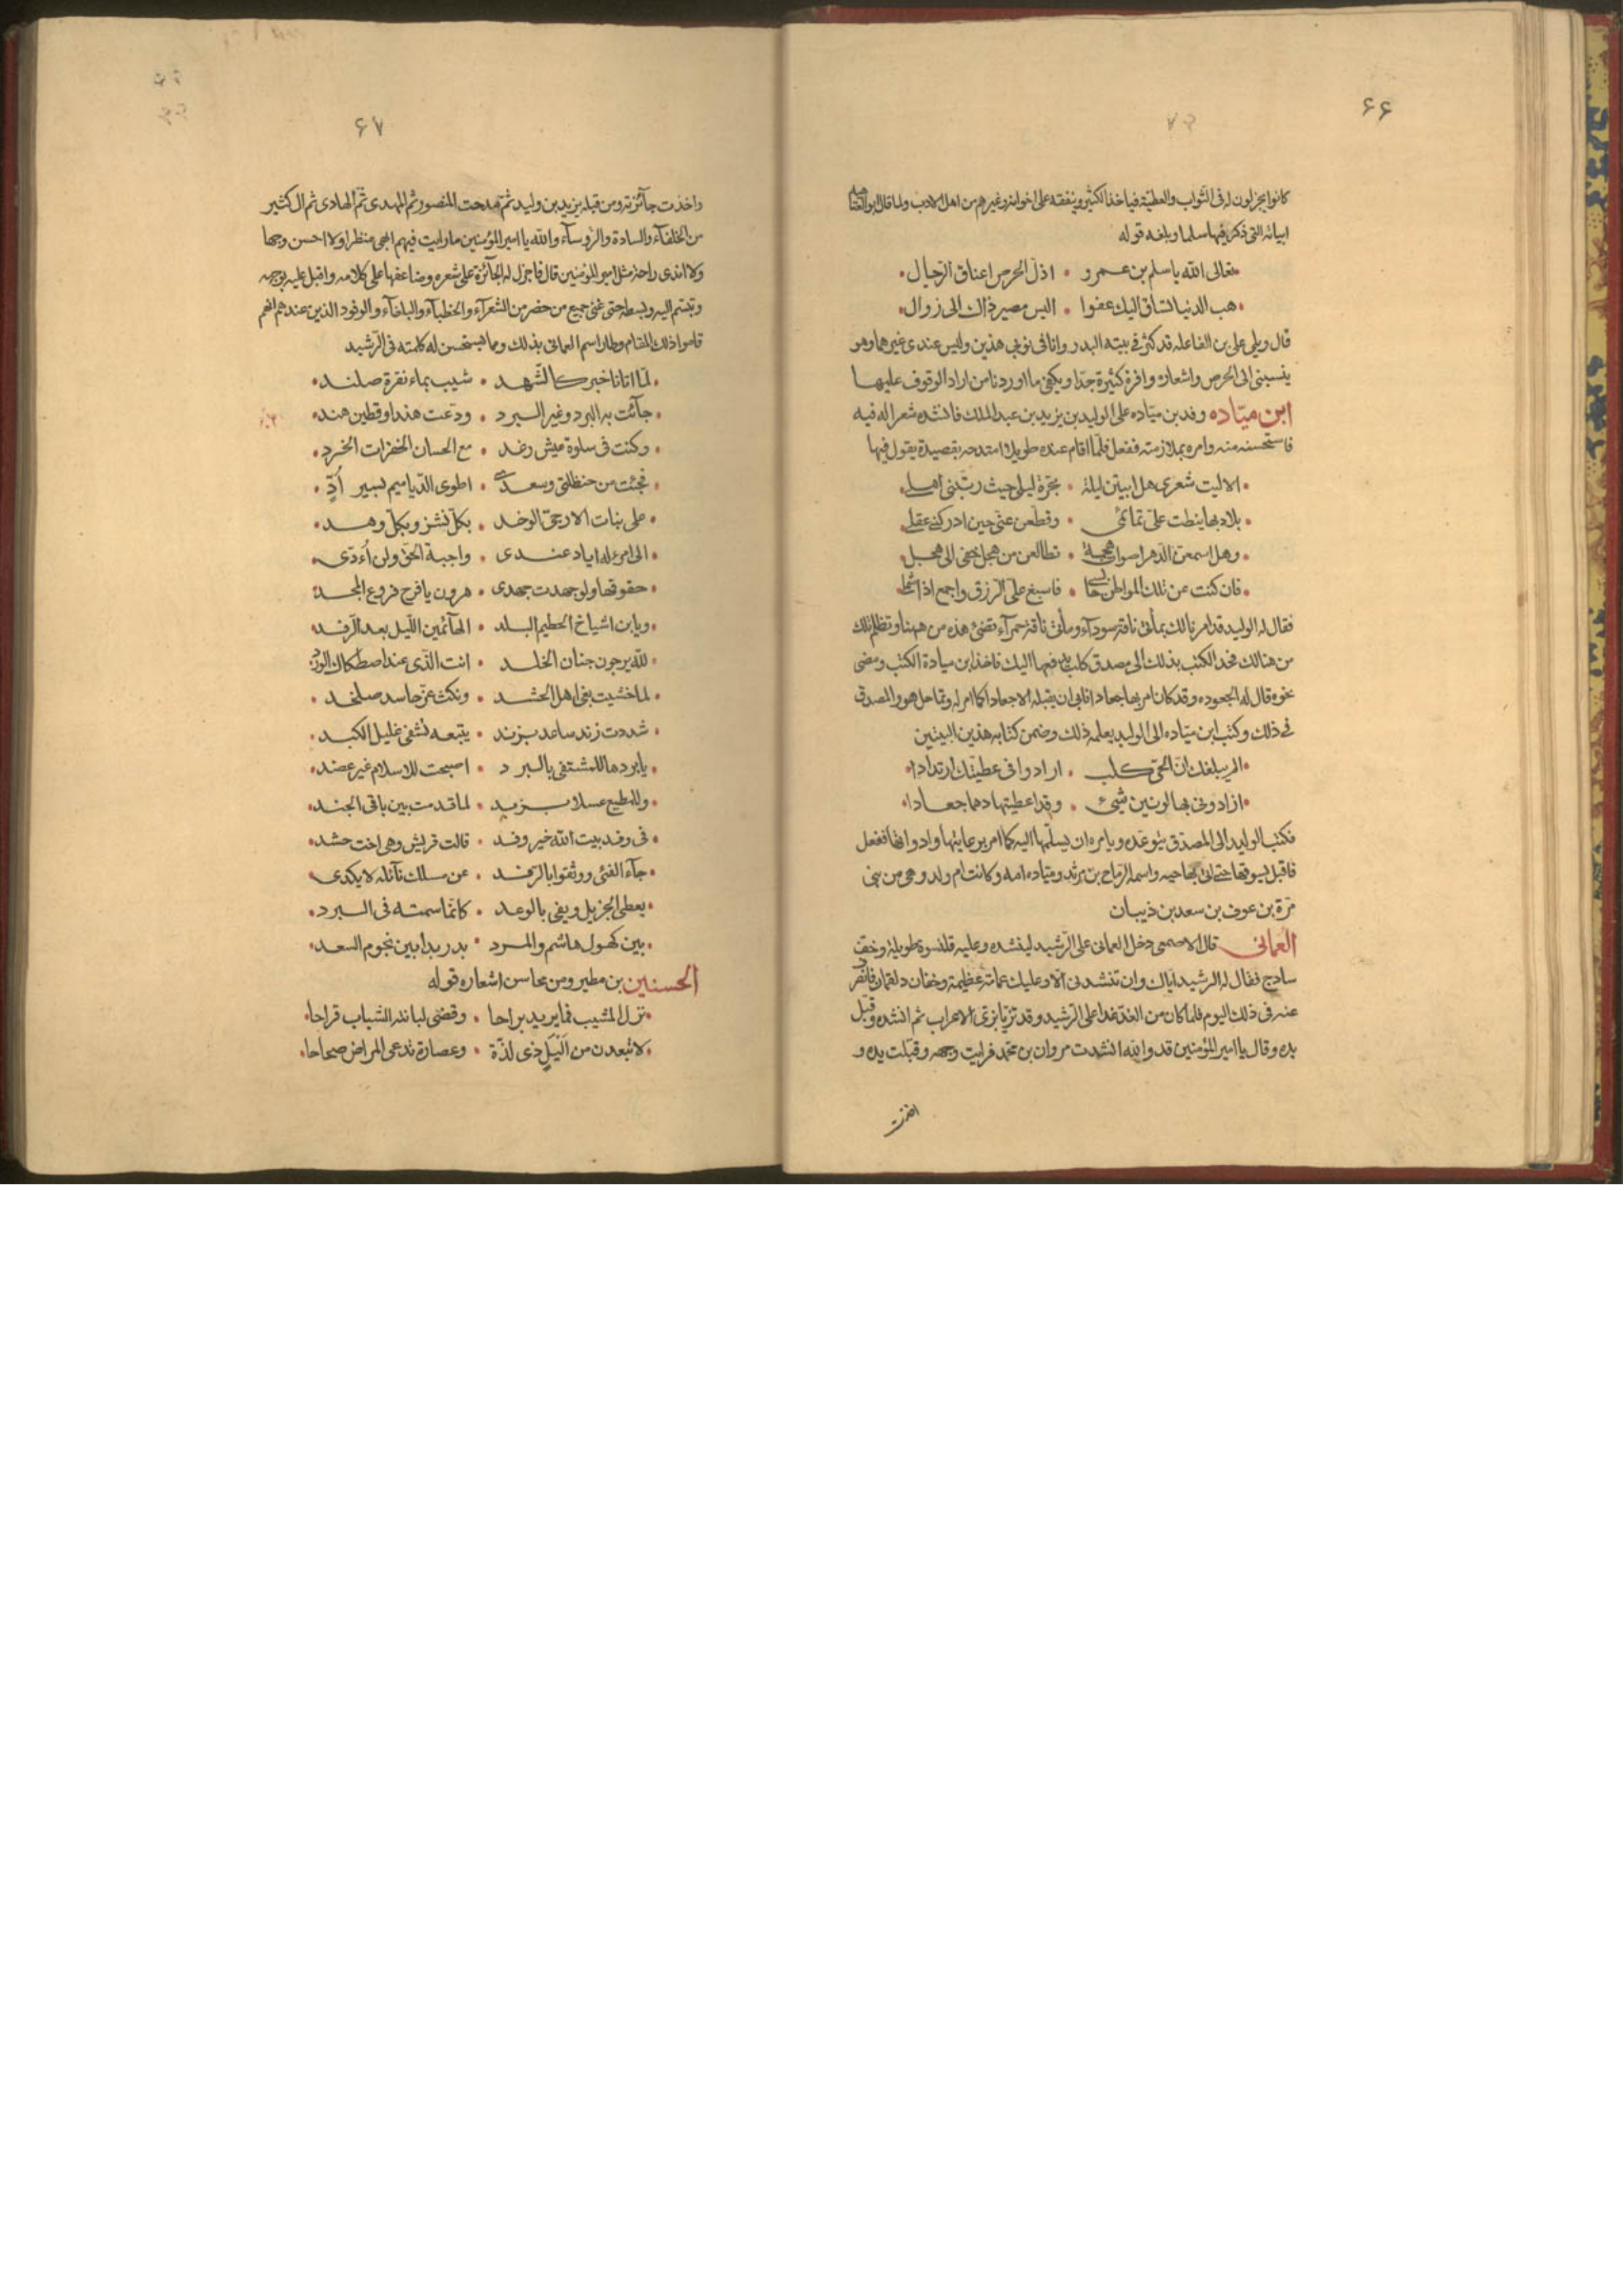 ۶۶
كانوا يجزلون له فى الثواب والعطية فياخذ الكثير وينفقه على اخوانه وغيرهم من اهل الادب ولما قال ابو العتاهية
ابياته التى ذكر فيها سلما وبلغه قوله
تعالى الله يا سلم بن عمرو • اذل الحرص اعناق الرجال
هب الدنيا تساق اليك عفوا • اليس مصير ذاك الى زوال
قال ويلى على بن الفاعلة قد كنز فى بيته البدر وانا فى ثوبى هذين وليس عندى غيرهما وهو
ينسبنى الى الحرص واشعاره وافرة كثيرة جدا ويكفى ما اوردنا من اراد الوقوف عليها
ابن ميّاده وفد بن ميّاده على الوليد بن يزيد بن عبد الملك فانشده شعرا له فيه
فاستحسنه منه وامره بملازمته ففعل فلما اقام عنده طويلا امتدحه بقصيدة يقول فيها
الا ليت شعرى هل ابيتن ليلة • بحرّة ليلى حيث ربّتنى اهلى
بلاد بها نيطت علىّ تمائمى • وقطعن عنى حين ادركنى عقلى
وهل اسمعن الدهر اصوات هجمة • تطالعن من هجل خفى الى هجل
فان كنت عن تلك المواطن حابسى • فاسبغ علىّ الرزق واجمع اذا شملى
فقال له الوليد قد امرنا لك بمأتى ناقة سودآء ومأتى ناقة حمرآء تضئ هذه من ههنا وتظلم تلك
من هنالك فخذ الكتب بذلك الى مصدق كلب يدفعها اليك فاخذ ابن ميادة الكتب ومضى
نحوه قال له الجعوده وقد كان امر بها جعادا فابى ان يقبله الا جعادا كما امر له وتماحل هو والمصدق
فى ذلك وكتب ابن ميّاده الى الوليد يعلمه ذلك وضمن كتابه هذين البيتين
الم يبلغك ان الحىّ كلب • ارادوا فى عطيتك ارتدادا
ارادونى بها لونين شتى • وقد اعطيتها دهما جعادا
فكتب الوليد الى المصدّق يتوعّده ويامره ان يسلّمها اليه كما امر برعايتها وادواتها ففعل
فاقبل يسوقها حتى اتى بها حيه واسمه الرماح بن يزيد وميّاده امه وكانت ام ولد وهى من بنى
مرّة بن عوف بن سعد بن ذيبان
العمانى قال الاصمعى دخل العمانى على الرّشيد لينشده وعليه قلنسوة طويلة وخف
ساذج فقال له الرشيد اياك وان تنشدنى الا وعليك عمامة عظيمة وخفان دلقمان فانصرف
عنه فى ذلك اليوم فلما كان من الغد غدا على الرّشيد وقد تزيّا بزىّ الاعراب ثم انشده وقبّل
يده وقال يا امير المؤمنين قد والله انشدت مروان بن محمد فرايت وجهه وقبلت يده و
اخذت
۶۷
واخذت جآئزته ومن قبله يزيد بن وليد ثم مدحت المنصور ثم المهدى ثم الهادى ثم الكثير
من الخلفآء والسادة والرؤسآء والله يا امير المؤمنين ما رايت فيهم ابهى منظرا ولا احسن وجها
ولا اندى راحة مثل امير المؤمنين قال فاجزل له الجآئزة على شعره وضاعفها على كلامه واقبل عليه بوجهه
وتبسم اليه وبسطه حتى غمّ جميع من حضر من الشعرآء والخطبآء والبلغآء والوفود الذين عندهم انهم
قاموا ذلك المقام وطار اسم العمانى بذلك ومما يستحسن له كلمته فى الرّشيد
لمّا اتانا خبر كالشّهد • شيب بماء نقرة صلند
جآئت به البرد وغير البرد • ودّعت هندا وقطين هند
وكنت فى سلوة عيش رغد • مع الحسان الخفرات الخرد
فجئت من حنظلتى وسعدى • اطوى الدّياميم بسير أدّ
على بنات الارحبىّ الوخد • بكلّ نشز وبكلّ وهد
الى امرء له اياد عندى • واجبة الحق ولن أءدّى
حقوقها ولو جهدت جهدى • هرون يا فرخ فروع المجد
ويا بن اشياخ الحطيم البلد • القآئمين الليل بعد الرّفد
للّه يرجون جنان الخلد • انت الذى عند اصطكاك الورد
لما خشيت بغى اهل الحشد • ونكث عن حاسد صلخد
شددت زند ساعد بزند • بتبعه تشفى غليل الكبد
يا بردها للمشتفى بالبرد • اصبحت للاسلام غير عضد
وللمطيع عسلا بزبد • لما قدمت بين باقى الجند
فى وفد بيت الله خير وفد • قالت قريش وهى اخت حشد
جآء الفتى ووثقوا بالرفد • عن مسلك نآئله لا يكدى
يعطى الجزيل ويفى بالوعد • كانما سمته فى البرد
بين كهول هاشم والمرد • بدر بدا بين نجوم السعد
الحسنين بن مطير ومن محاسن اشعاره قوله
نزل المشيب فما يريد براحا • وقضى لبانته الشباب قراحا
لا تبعدن من اليّل ذى لذّة • وعصارة تدعى المراض صحاحا